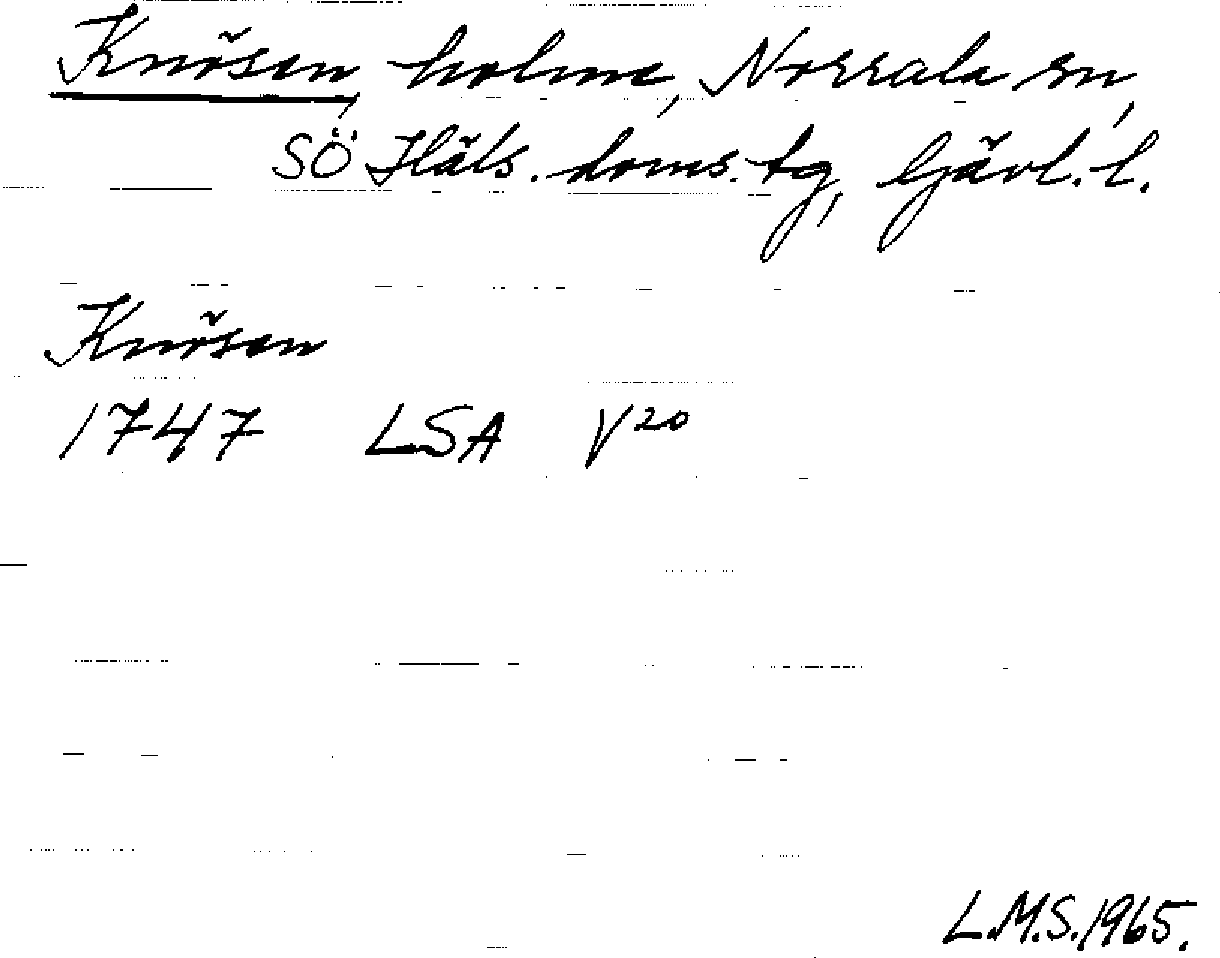 Knösen, holme, Norrala sn,
SÖ Häls. doms. tg, Gävl. l.
Knösen
1747 LSA V²⁰
L.M.S. 1965.